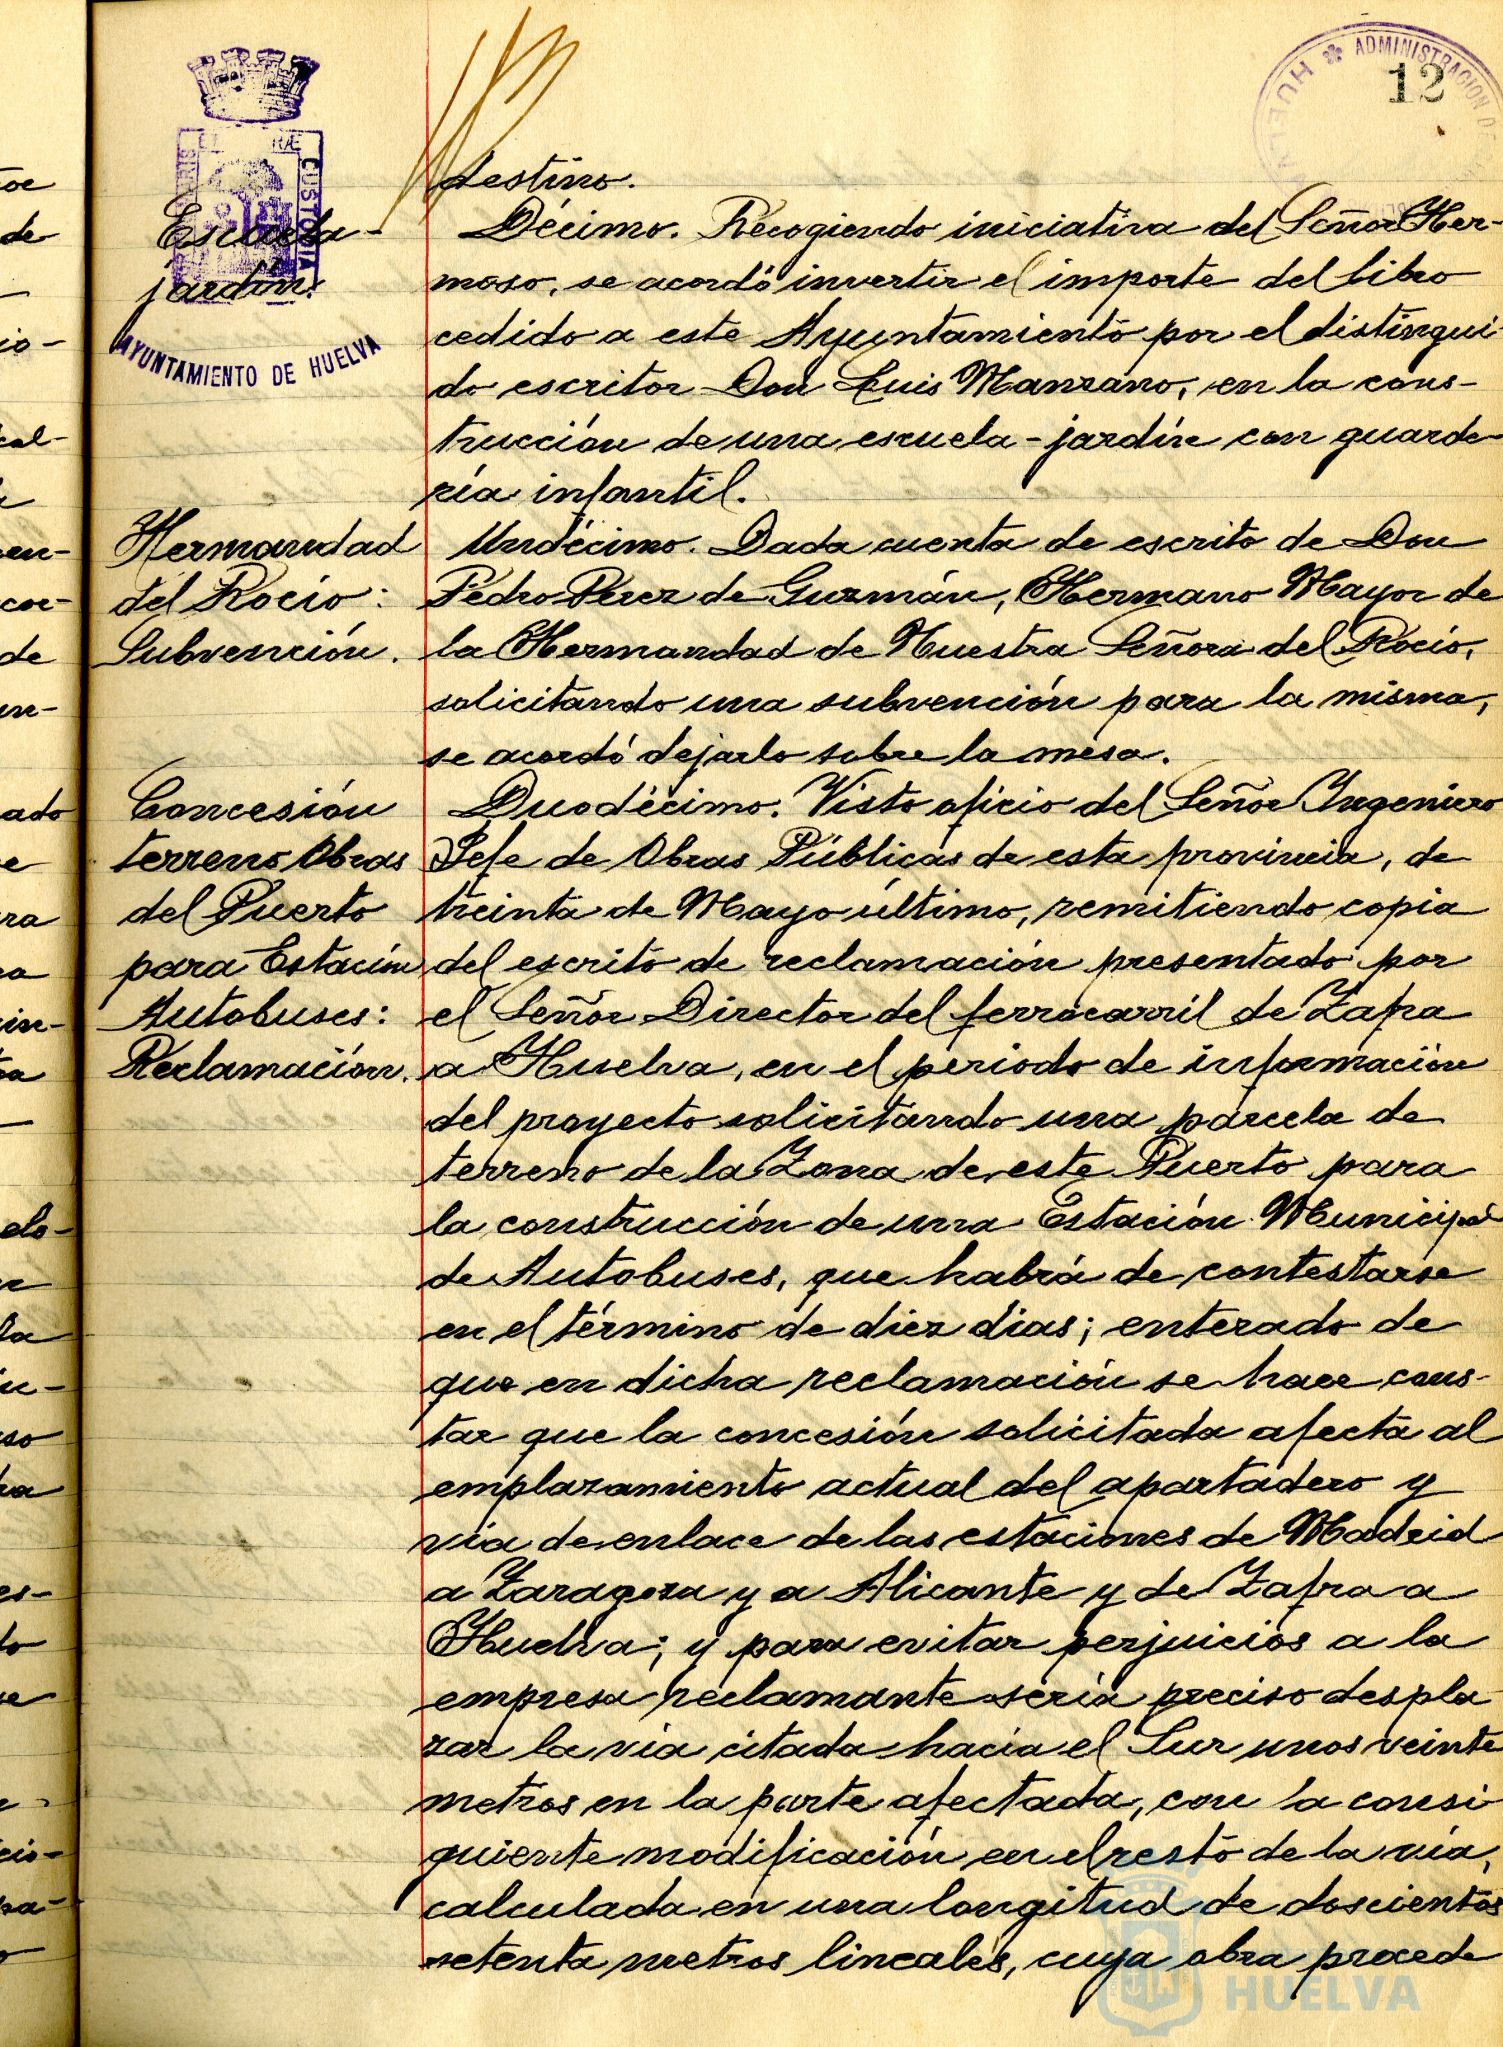 12
HUELVA * ADMINISTRACION DE
CUSTODIA
AYUNTAMIENTO DE HUELVA
destino.
Escuela-
jardín.
Décimo. Recogiendo iniciativa del Señor Her-
moso, se acordó invertir el importe del libro
cedido a este Ayuntamiento por el distingui-
do escritor Don Luis Manzano, en la cons-
trucción de una escuela-jardín con guarde-
ría infantil.
Hermandad
del Rocio:
Subvención.
Undécimo. Dada cuenta de escrito de Don
Pedro Pérez de Guzmán, Hermano Mayor de
la Hermandad de Nuestra Señora del Rocio,
solicitando una subvención para la misma,
se acordó dejarlo sobre la mesa.
Concesión
terreno Obras
del Puerto
para Estación
Autobuses:
Reclamación.
Duodécimo. Visto oficio del Señor Ingeniero
Jefe de Obras Públicas de esta provincia, de
treinta de Mayo último, remitiendo copia
del escrito de reclamación presentado por
el Señor Director del ferrocarril de Zafra
a Huelva, en el periodo de información
del proyecto solicitando una parcela de
terreno de la Zona de este Puerto para
la construcción de una Estación Municipal
de Autobuses, que habrá de contestarse
en el término de diez dias; enterado de
que en dicha reclamación se hace cons-
tar que la concesión solicitada afecta al
emplazamiento actual del apartadero y
via de enlace de las estaciones de Madrid
a Zaragoza y a Alicante y de Zafra a
Huelva; y para evitar perjuicios a la
empresa reclamante seria preciso despla-
zar la via citada hacia el Sur unos veinte
metros en la parte afectada, con la consi
guiente modificación en el resto de la via,
calculada en una longitud de doscientos
setenta metros lineales, cuya obra procede
HUELVA